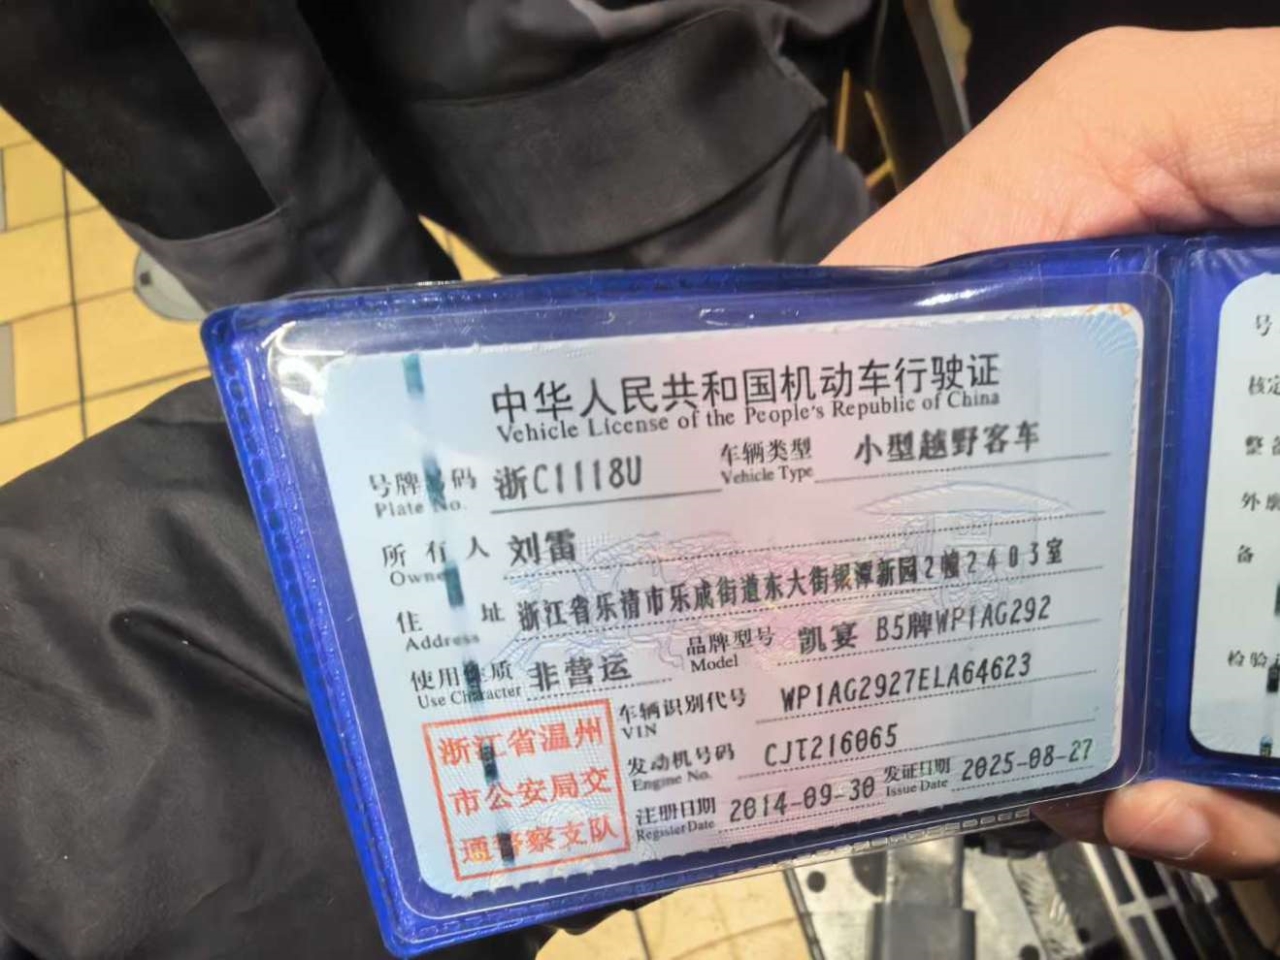 中华人民共和国机动车行驶证
Vehicle License of the People's Republic of China
号牌号码 浙C1118U 车辆类型 小型越野客车
Plate No. Vehicle Type
所有人 刘雷
Owner
住址 浙江省乐清市乐成街道东大街银潭新园2幢2403室
Address
使用性质 非营运 品牌型号 凯宴 B5牌WP1AG292
Use Character Model
车辆识别代号 WP1AG2927ELA64623
VIN
发动机号码 CJT216065
Engine No.
注册日期 2014-09-30 发证日期 2025-08-27
Register Date Issue Date
浙江省温州
市公安局交
通警察支队
号
核定
整备
外廓
备
检验